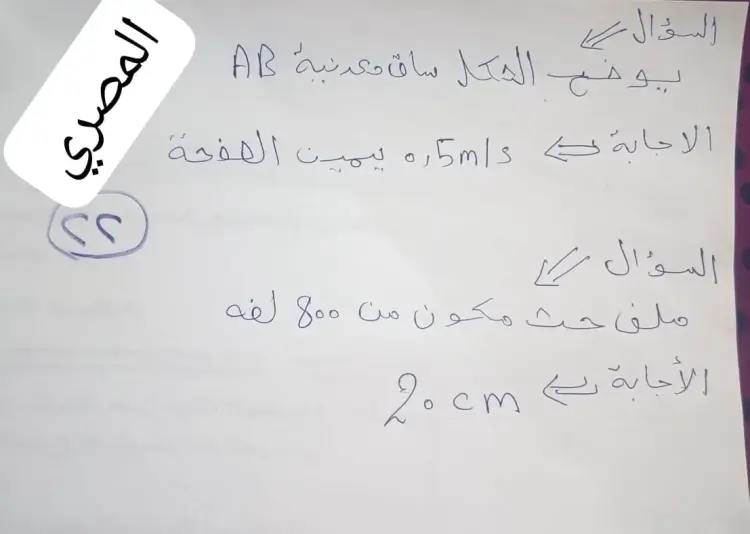 المصري
السؤال
يوضح الشكل ساق معدنية AB
الاجابة 0,5m/s يمين الصفحة
٢٢
السؤال
ملف حث مكون من 800 لفه
الأجابة 20 cm